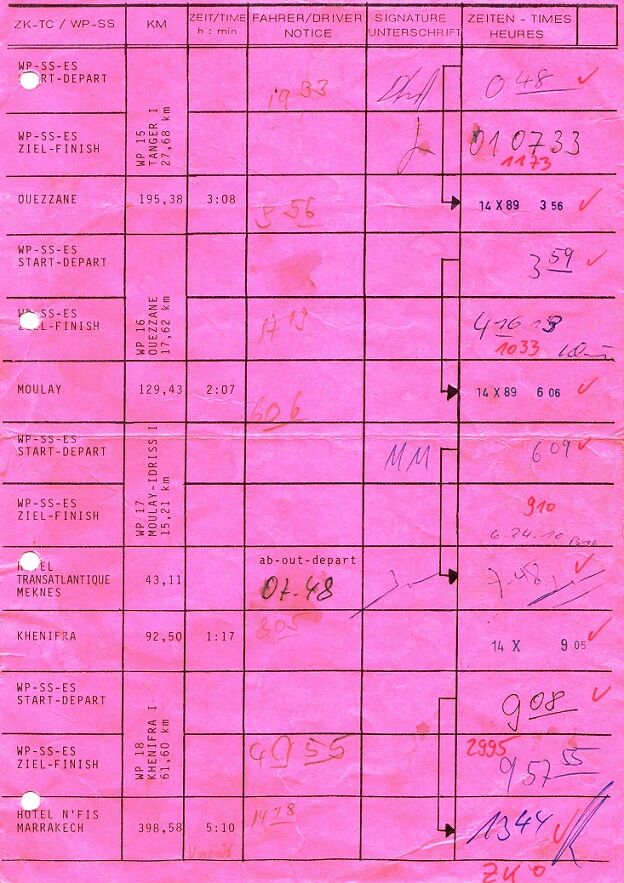 ZK-TC / WP-SS KM ZEIT/TIME h : min FAHRER/DRIVER NOTICE SIGNATURE UNTERSCHRIFT ZEITEN - TIMES HEURES
WP-SS-ES
START-DEPART
19 33
0 48
WP 15
TANGER I
27,68 km
WP-SS-ES
ZIEL-FINISH
01 07 33
1173
OUEZZANE 195,38 3:08 3 56 14 X 89 3 56
WP-SS-ES
START-DEPART
3 59
WP 16
OUEZZANE
17,62 km
WP-SS-ES
ZIEL-FINISH
17 13
4 16 13
1033
MOULAY 129,43 2:07 606 14 X 89 6 06
WP-SS-ES
START-DEPART
MM
6 09
WP 17
MOULAY-IDRISS I
15,21 km
WP-SS-ES
ZIEL-FINISH
910
6.24.10
HOTEL
TRANSATLANTIQUE
MEKNES
43,11
ab-out-depart
07.48
7.48
KHENIFRA 92,50 1:17 805 14 X 9 05
WP-SS-ES
START-DEPART
9 08
WP 18
KHENIFRA I
61,60 km
WP-SS-ES
ZIEL-FINISH
49 55
2995
9 57 55
HOTEL N'FIS
MARRAKECH
398,58 5:10 14 18 1344
ZK 0